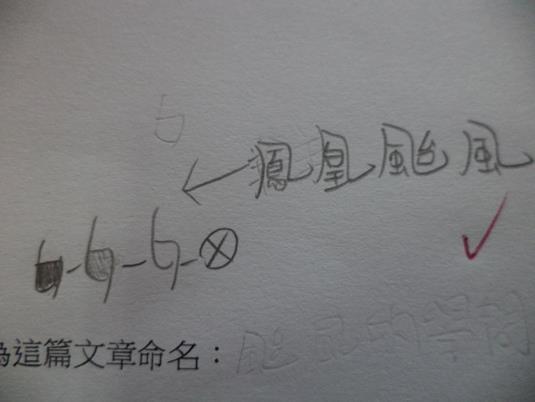 鳳凰颱風
為這篇文章命名：颱風的學問